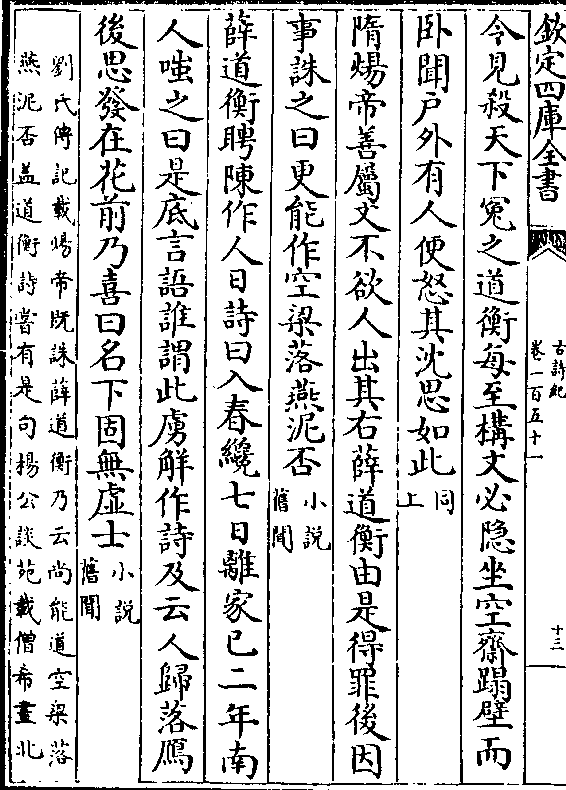 欽定四庫全書
古詩紀
卷一百五十一
十三
今見殺天下寃之道衡每至構文必隠坐空齋蹋壁而
卧聞户外有人便怒其沈思如此同上
隋煬帝善屬文不欲人出其右薛道衡由是得罪後因
事誅之曰更能作空梁落燕泥否小説舊聞
薛道衡聘陳作人日詩曰入春纔七日離家已二年南
人嗤之曰是底言語誰謂此虜解作詩及云人歸落鴈
後思發在花前乃喜曰名下固無虛士小説舊聞
劉氏傳記載煬帝既誅薛道衡乃云尚能道空梁落
燕泥否盖道衡詩嘗有是句楊公談苑載僧希晝北